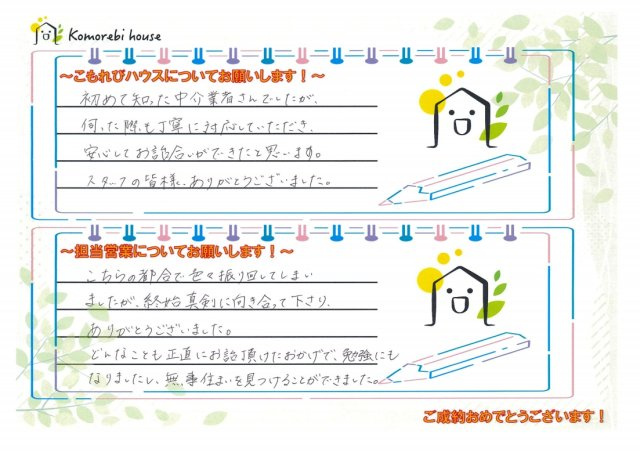 Komorebi house
～こもれびハウスについてお願いします！～
初めて知った中介業者さんでしたが、
伺った際も丁寧に対応していただき、
安心してお話合いができたと思います。
スタッフの皆様、ありがとうございました。
～担当営業についてお願いします！～
こちらの都合で色々振り回してしまい
ましたが、終始真剣に向き合って下さり、
ありがとうございました。
どんなことも正直にお話頂けたおかげで、勉強にも
なりましたし、無事住まいを見つけることができました。
ご成約おめでとうございます！